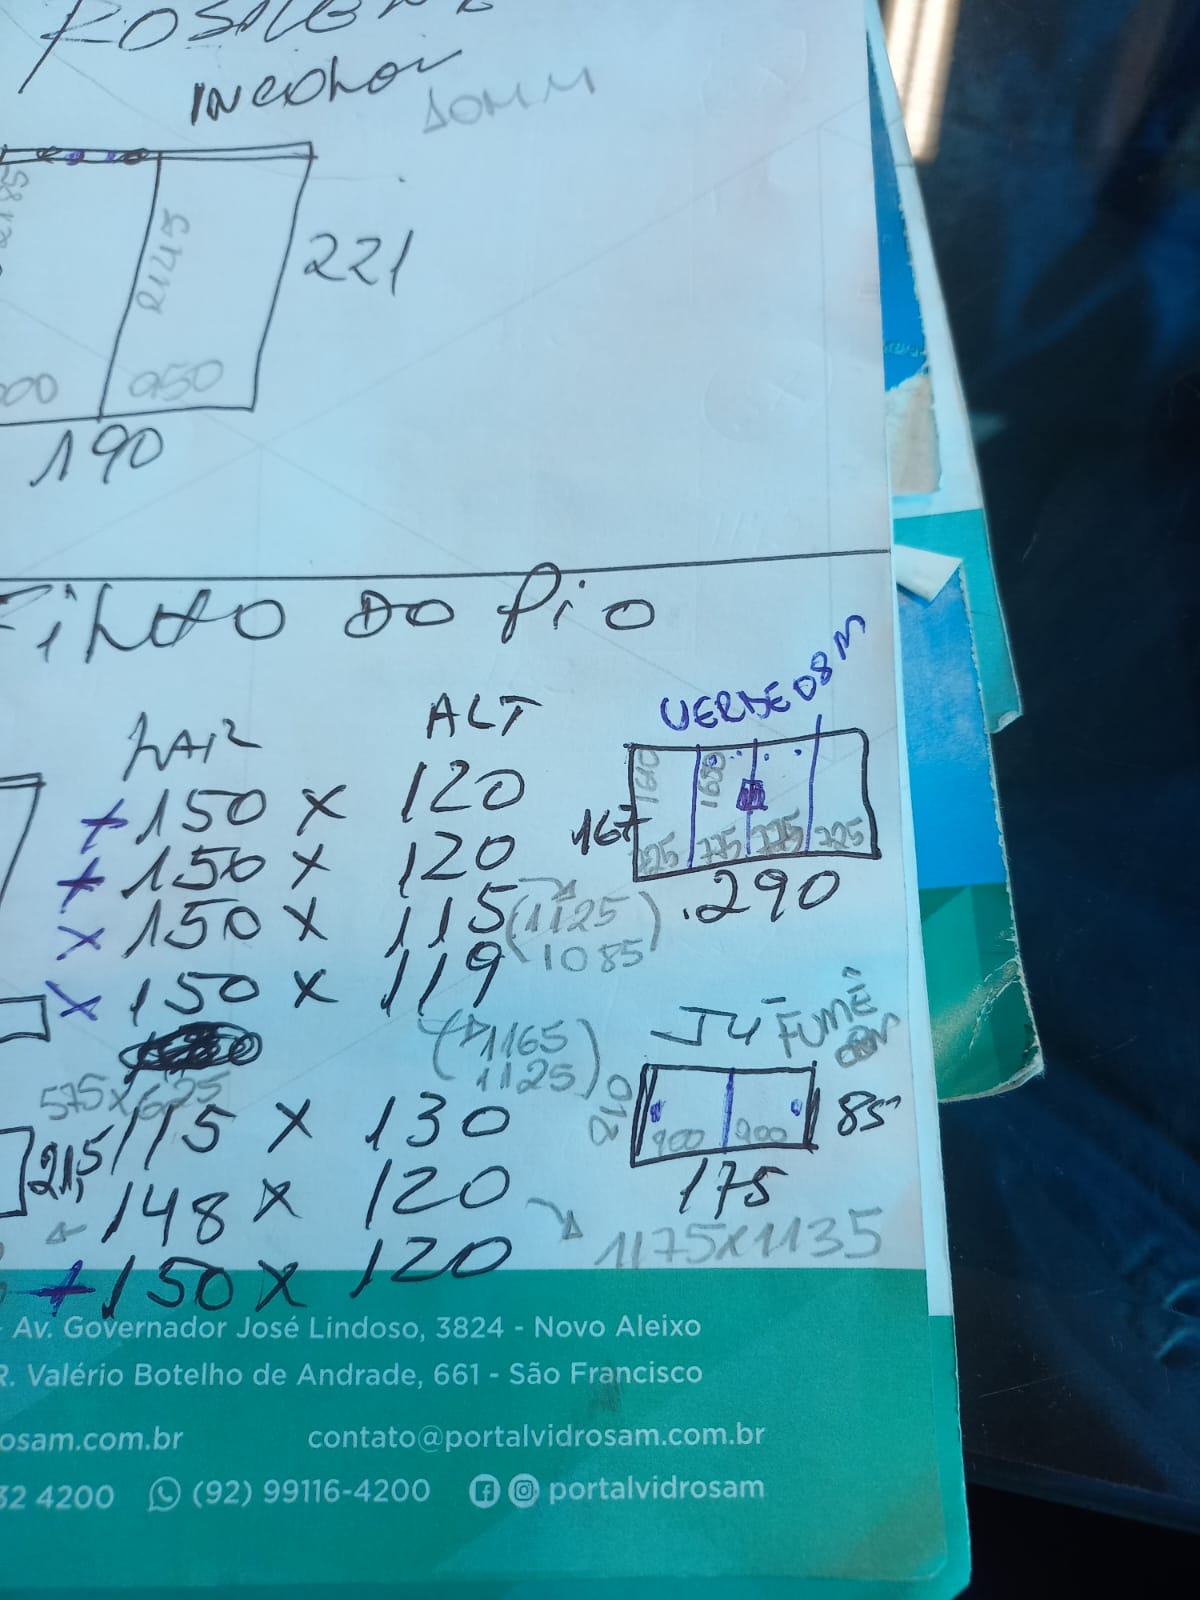 INCOLOR
10MM
2185
2145
221
00
950
190
FILHO DO PIO
LAR
ALT
VERDE 08M
+ 150 x 120
+ 150 x 120
x 150 x 115
(1125
1085)
x 150 x 119
(1165
1125)
1610
1650
167
725
775
775
725
.290
575x625
115 x 130
J4
FUMÊ
210
900
900
85
175
21,5
148 x 120
1175x1135
+ 150 x 120
Av. Governador José Lindoso, 3824 - Novo Aleixo
R. Valério Botelho de Andrade, 661 - São Francisco
osam.com.br
contato@portalvidrosam.com.br
32 4200
(92) 99116-4200
portalvidrosam